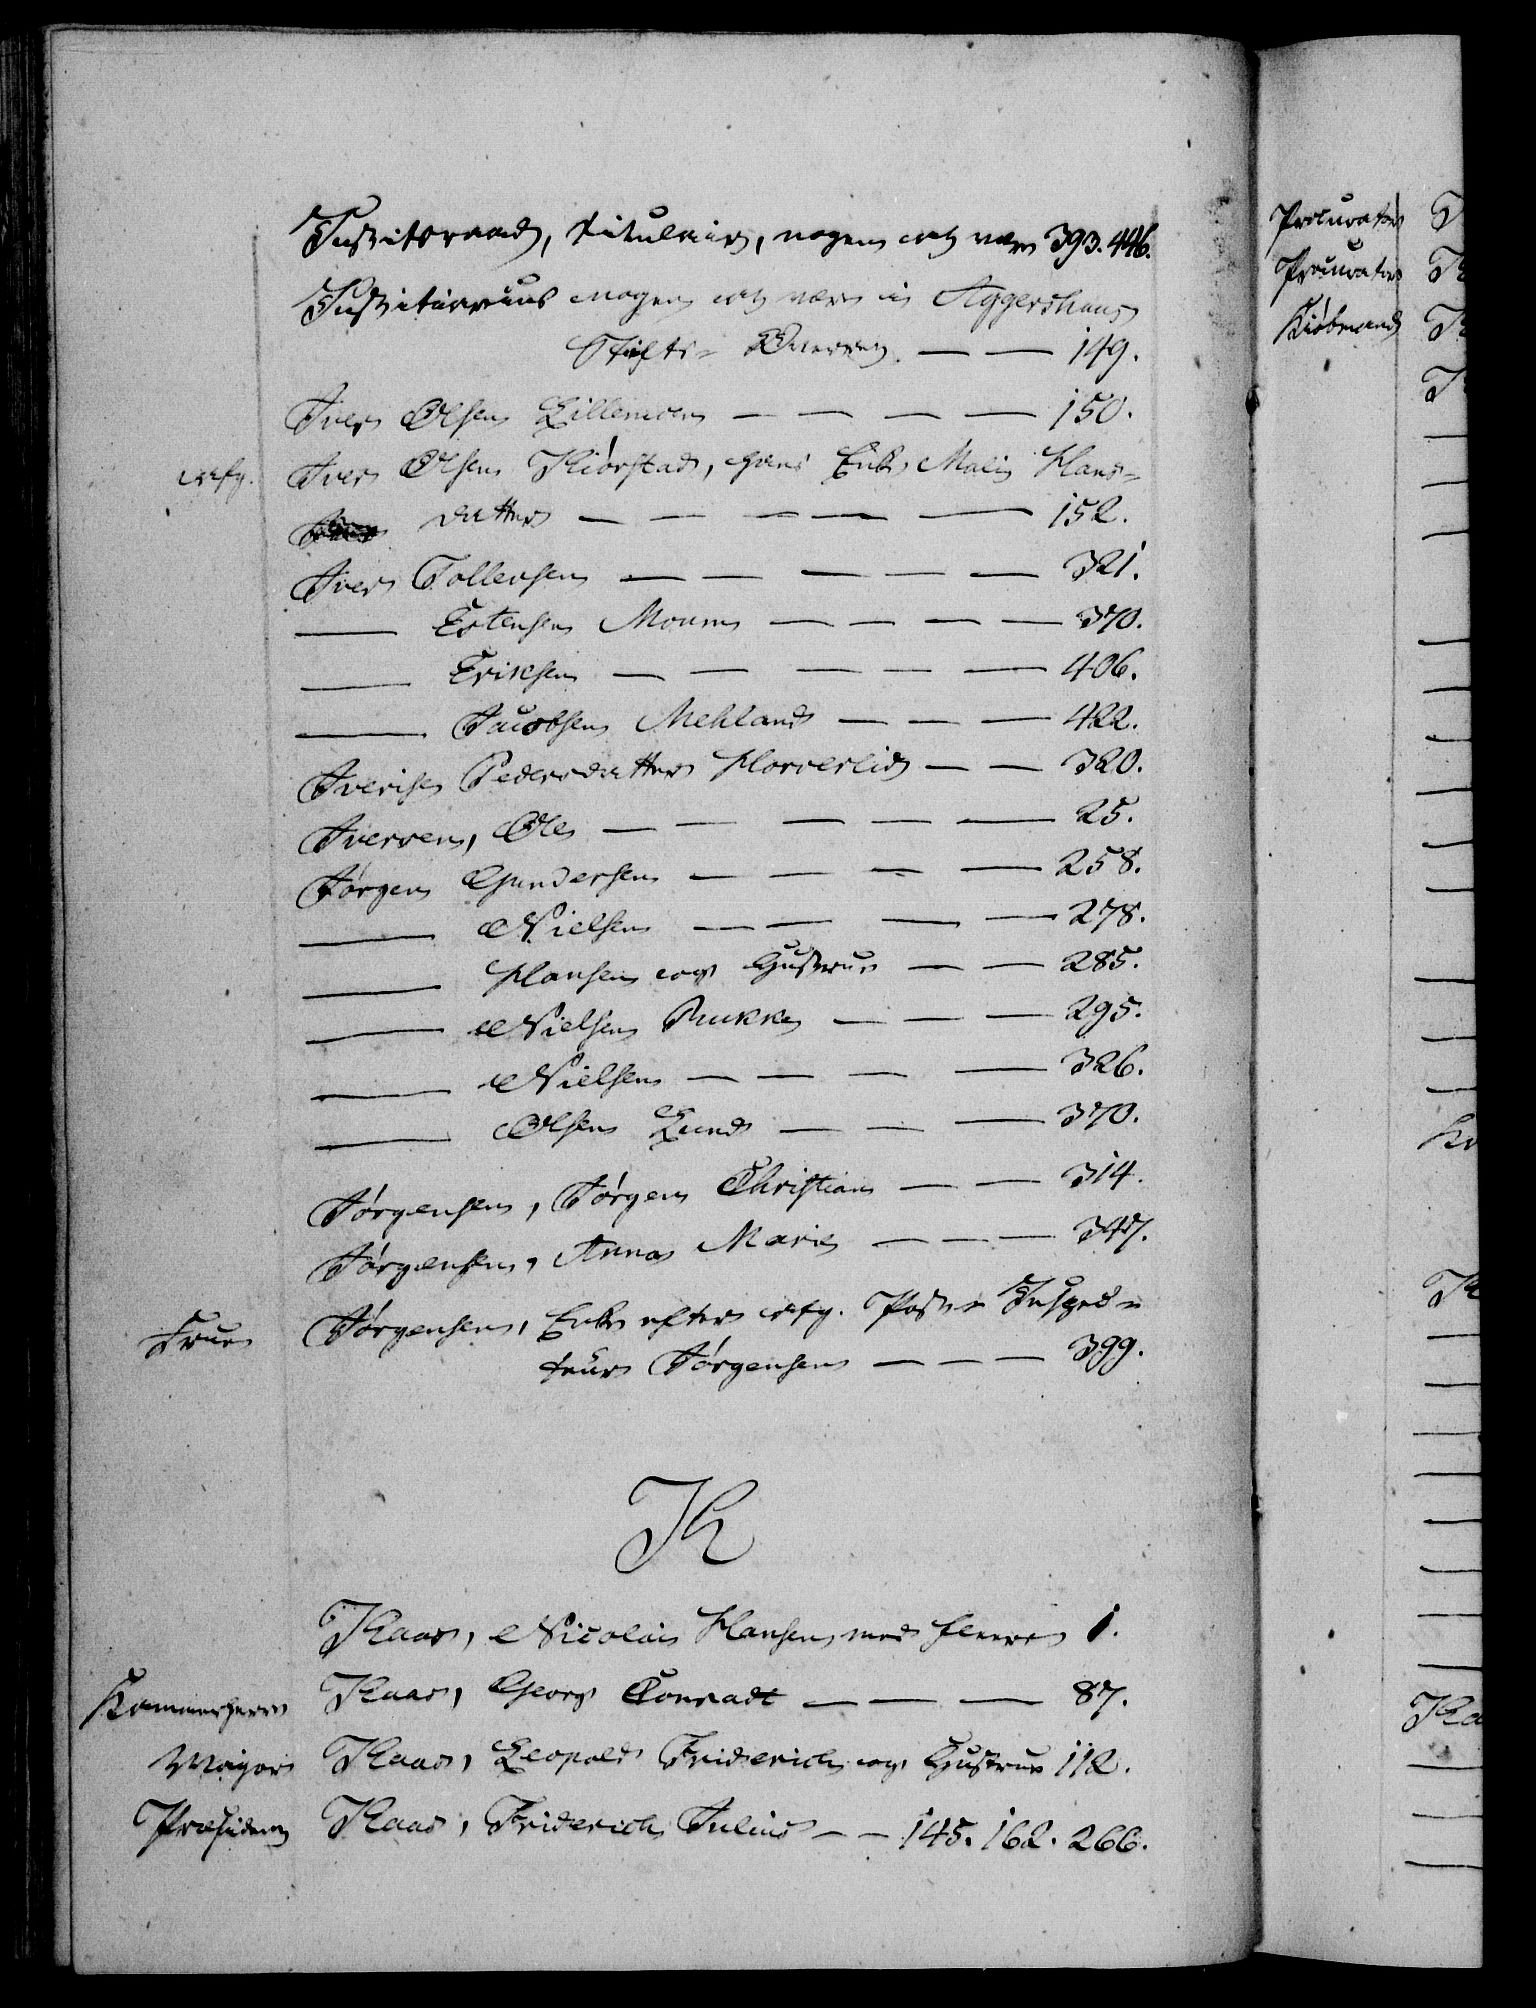 Justitsraad, titulair, nogen at være 393. 446.
Justitiarius nogen at være in Aggershuus
Stifts= Overret. — — 149.
Iver Olsen Lillemoen — — — — 150.
afg. Iver Olsen Kiørstad, hans Enke Mali Hans=
datter — — — — — 152.
Iver Tollersen — — — — — 321.
— Estensen Moum — — — — 370.
— Erichsen — — — — — 406.
— Jacobsen Mehland — — — 422.
Pedersdatter — — 320.
Iversen, Ole — — — — — 25.
Jørgen Gundersen — — — — 258.
— Nielsen — — — — 278.
— Hansen og Hustrue — — 285.
— Nielsen — — — 295.
— Nielsen — — — — 326.
— Olsen Lund — — — 370.
Jørgensen, Jørgen Christian — — 314.
Jørgensen, Anna Marie — — — 347.
Frue Jørgensen, Enke efter afg. Post= Inspec=
teur Jørgensen — — — 399.
K
Kaas, Nicolai Hansen med fleere 1.
Kammerherre Kaas, Georg Conradt — — — 87.
Major Kaas, Leopold Friderich og Hustrue 112.
Præsident Kaas, Friderich Julius — — 145. 162. 266.
Procurator
Procurator
Kiøbmand